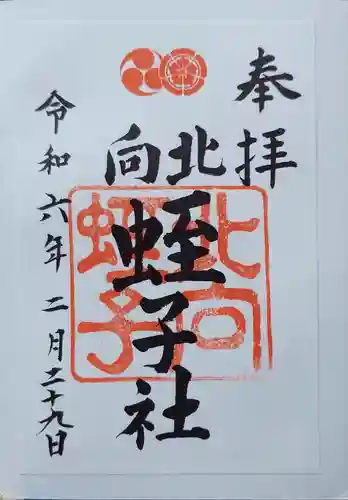 奉拝
北向
蛭子社
令和六年二月二十九日
北向
蛭子